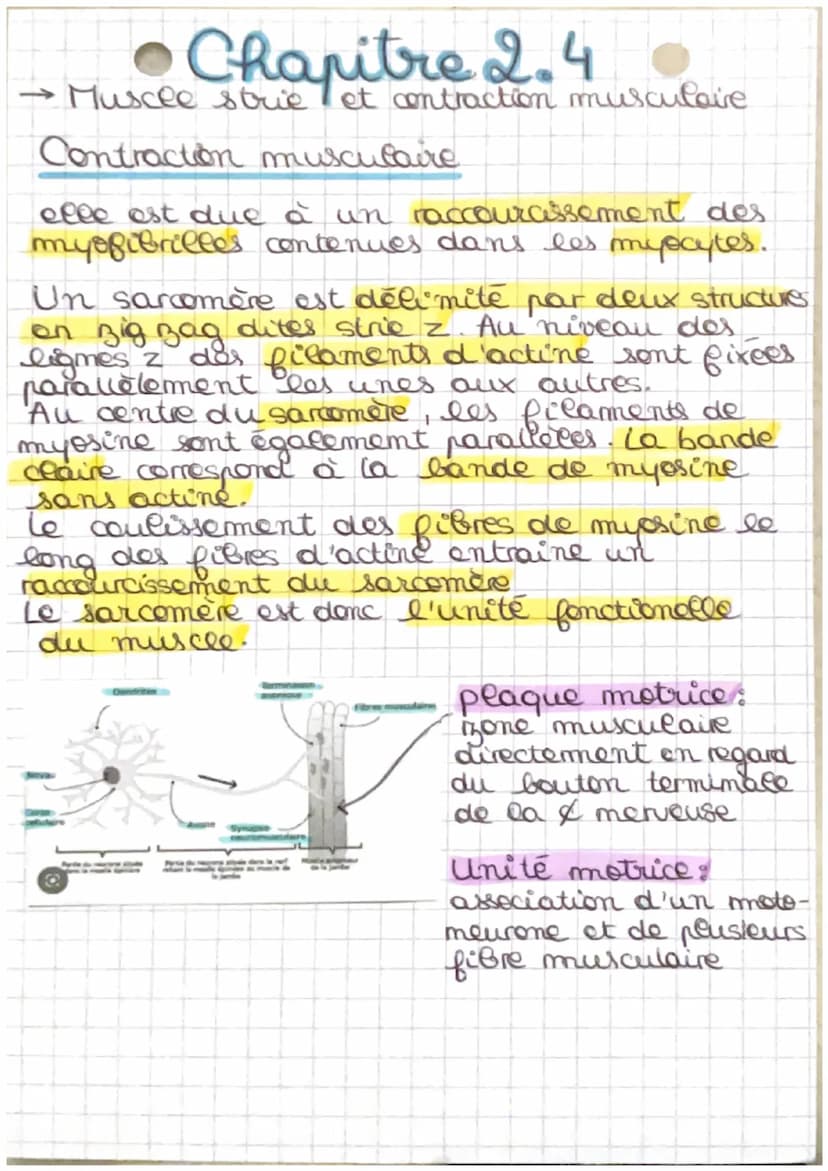 Chapitre 2.4
→ Muscle strie et contraction musculaire
Contraction musculaire
elle est due à un raccourcissement des
myofibrilles contenues dans les myocytes.
Un sarcomère est délimité par deux structures
en zig zag dites strie z. Au niveau des
lignes z des filaments d'actine sont fixées
parallèlement les unes aux autres.
Au centre du sarcomère, les filaments de
myosine sont également parallèles. La bande
claire correspond à la bande de myosine
sans actine.
Le coulissement des fibres de myosine le
long des fibres d'actine entraine un
raccourcissement du sarcomère
Le sarcomère est donc l'unité fonctionelle
du muscle.
Dendrites
Terminaison
axonique
Fibres musculaires
Noyau
Corps
cellulaire
Axone
Synapse
neuromusculaire
Partie du neurone située
dans la moelle épinière
Partie du neurone située dans le nerf
reliant la moelle épinière au muscle de
la jambe
Muscle
de la jambe
plaque motrice :
zone musculaire
directement en regard
du bouton terminale
de la ¢ nerveuse
Unité motrice :
association d'un moto-
neurone et de plusieurs
fibre musculaire